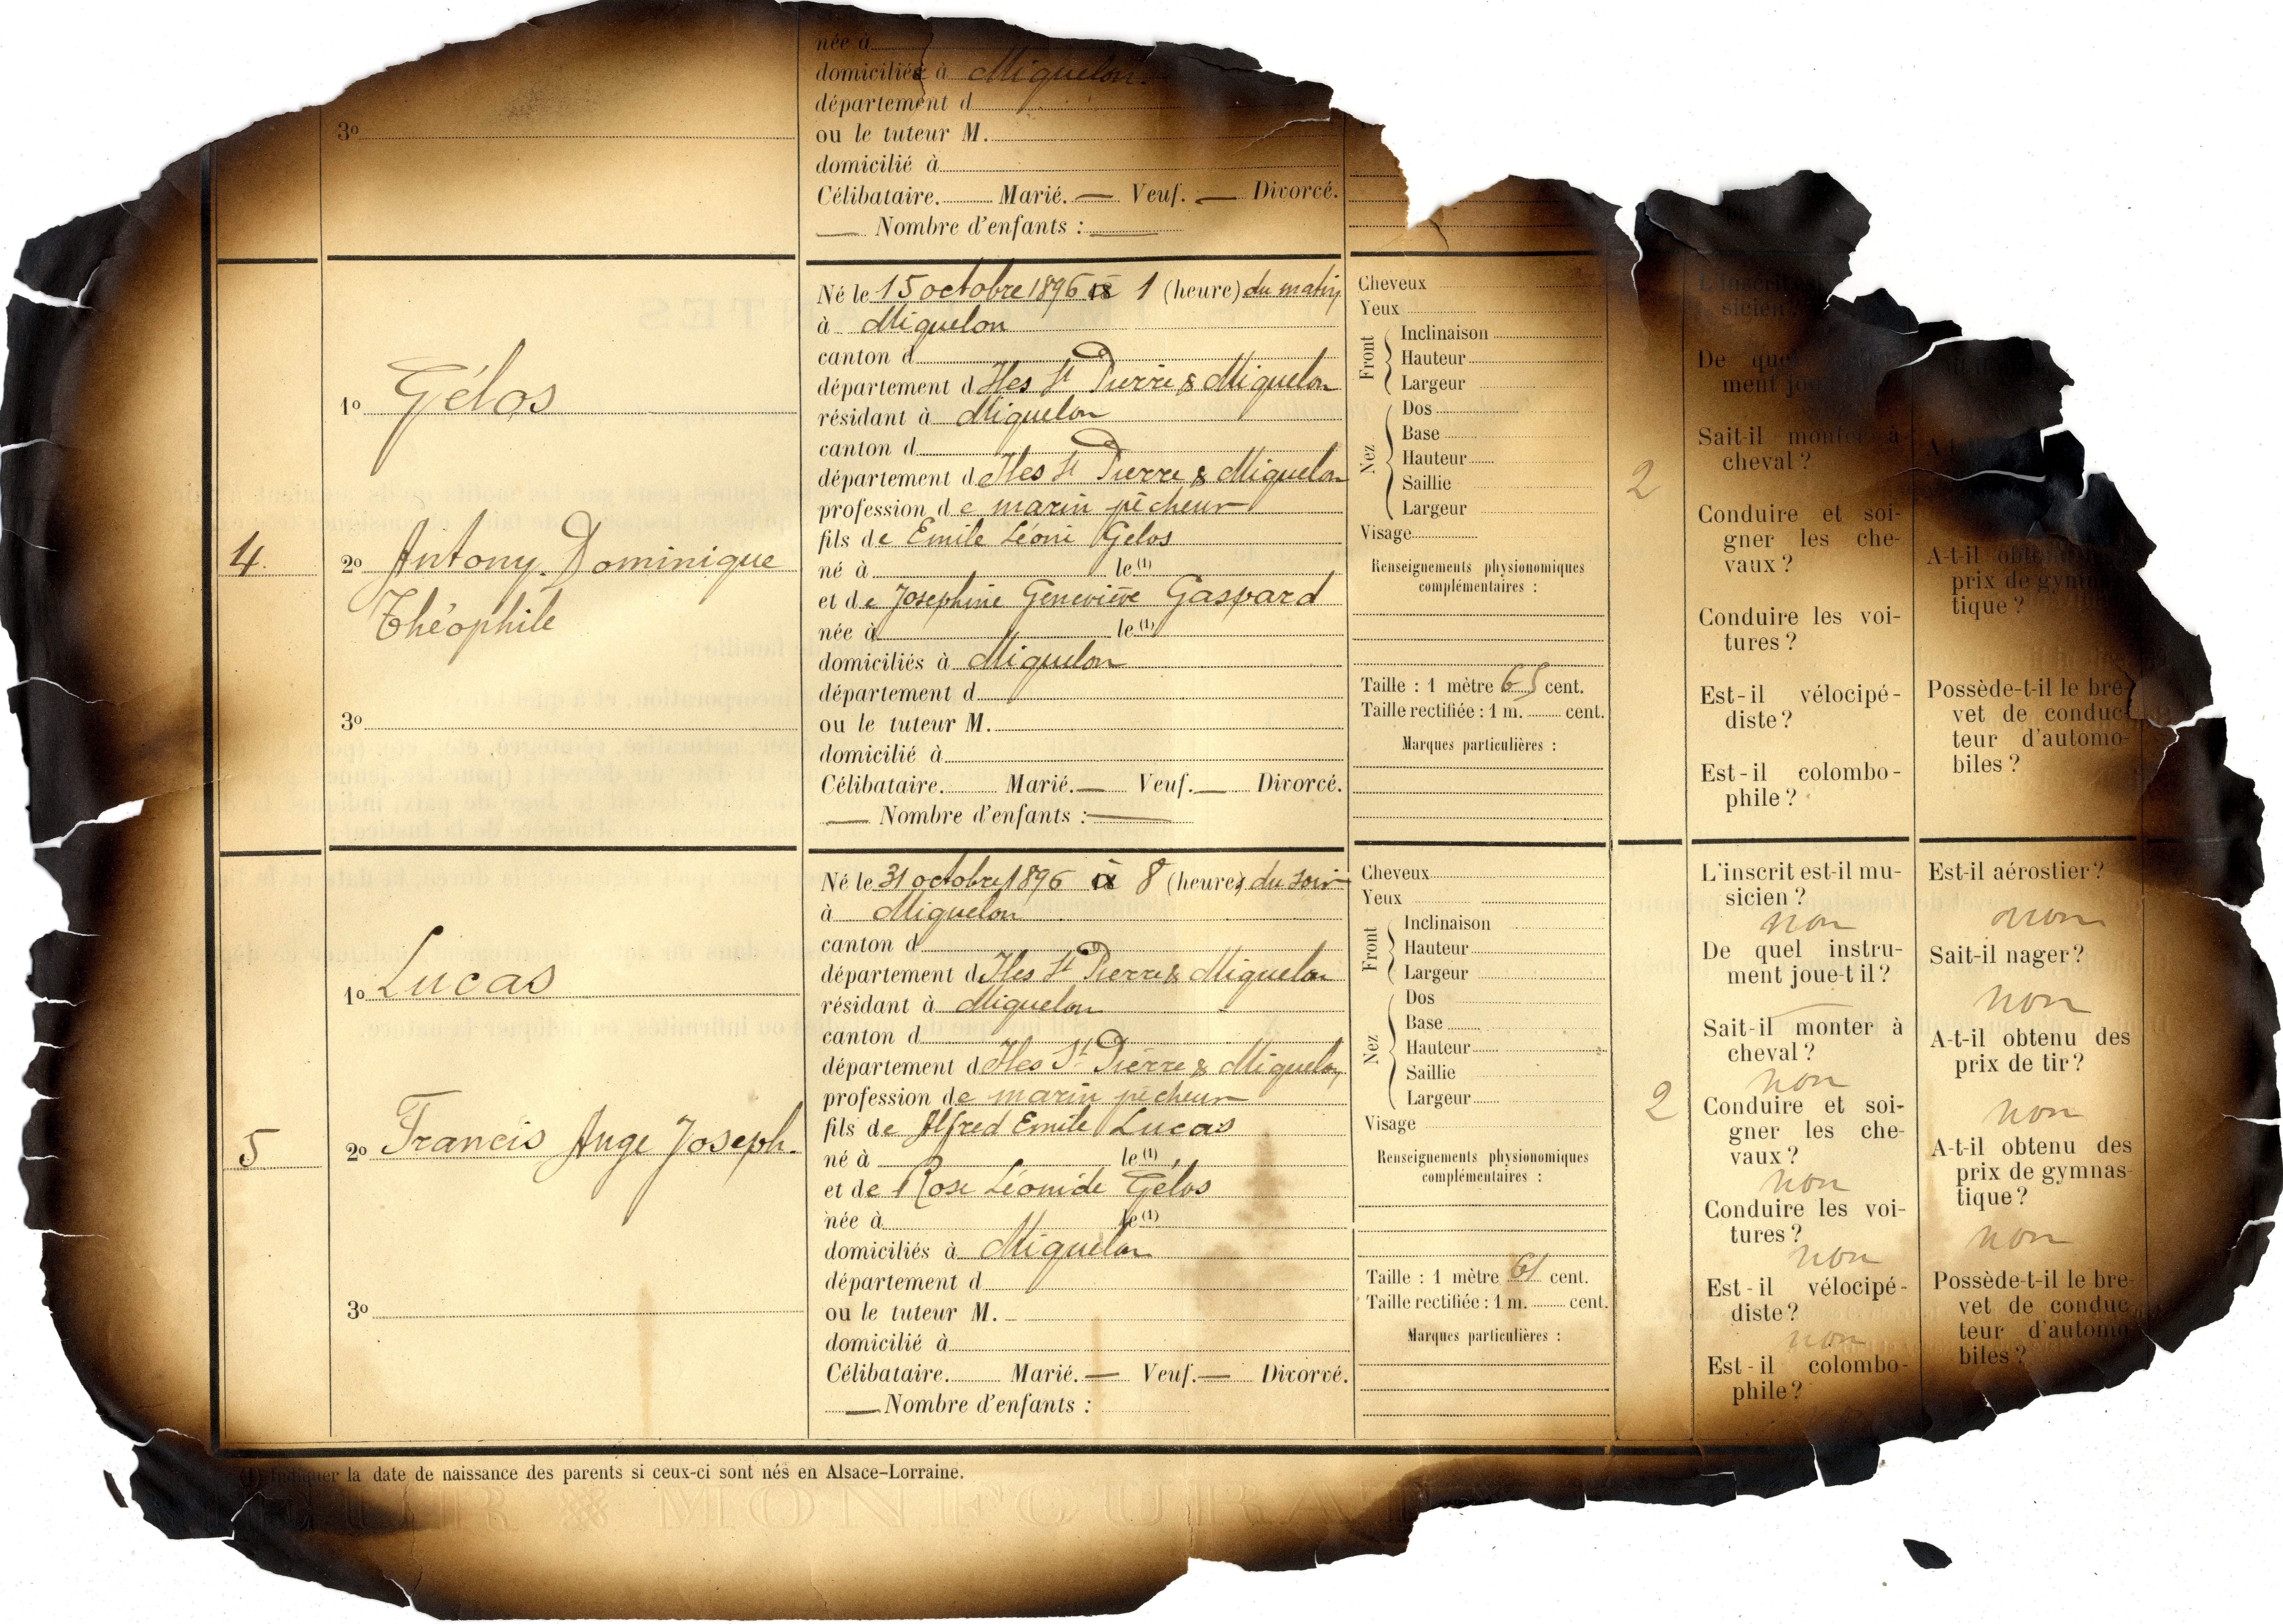 née à
domiciliés à Miquelon.
département d
3o
ou le tuteur M.
domicilié à
Célibataire. Marié. — Veuf. — Divorcé.
— Nombre d'enfants : —
4.
1o Gélos
2o Antony. Dominique
Théophile
3o
Né le 15 octobre 1896 à 1 (heure) du matin
à Miquelon
canton d
département d Iles St Pierre & Miquelon
résidant à Miquelon
canton d
département d Iles St Pierre & Miquelon
profession de marin pêcheur
fils de Emile Léoni Gélos
né à le (1)
et de Joséphine Geneviève Gaspard
née à le (1)
domiciliés à Miquelon
département d
ou le tuteur M.
domicilié à
Célibataire. Marié. — Veuf. — Divorcé.
— Nombre d'enfants : —
Cheveux
Yeux
Front
Inclinaison
Hauteur
Largeur
Nez
Dos
Base
Hauteur
Saillie
Largeur
Visage
Renseignements physionomiques
complémentaires :
Taille : 1 mètre 65 cent.
Taille rectifiée : 1 m. cent.
Marques particulières :
2
L'inscrit est-il
sicien ?
De quel
ment joue
Sait-il monter à
cheval ?
Conduire et soi-
gner les che-
vaux ?
Conduire les voi-
tures ?
Est-il vélocipé-
diste ?
Est-il colombo-
phile ?
A-t-il obtenu
prix de gymnas
tique ?
Possède-t-il le bre-
vet de conduc-
teur d'automo-
biles ?
5
1o Lucas
2o Francis Ange Joseph.
3o
Né le 31 octobre 1896 à 8 (heures) du soir
à Miquelon
canton d
département d Iles St Pierre & Miquelon
résidant à Miquelon
canton d
département d Iles St Pierre & Miquelon
profession de marin pêcheur
fils de Alfred Emile Lucas
né à le (1)
et de Rose Léonide Gélos
née à le (1)
domiciliés à Miquelon
département d
ou le tuteur M.
domicilié à
Célibataire. Marié. — Veuf. — Divorcé.
— Nombre d'enfants :
Cheveux
Yeux
Front
Inclinaison
Hauteur
Largeur
Nez
Dos
Base
Hauteur
Saillie
Largeur
Visage
Renseignements physionomiques
complémentaires :
Taille : 1 mètre 61 cent.
Taille rectifiée : 1 m. cent.
Marques particulières :
2
L'inscrit est-il mu-
sicien ?
non
De quel instru-
ment joue-t il ?
—
Sait-il monter à
cheval ?
non
Conduire et soi-
gner les che-
vaux ?
non
Conduire les voi-
tures ?
non
Est-il vélocipé-
diste ?
non
Est-il colombo-
phile ?
Est-il aérostier ?
non
Sait-il nager ?
non
A-t-il obtenu des
prix de tir ?
non
A-t-il obtenu des
prix de gymnas-
tique ?
non
Possède-t-il le bre-
vet de conduc
teur d'automo
biles ?
(1) Indiquer la date de naissance des parents si ceux-ci sont nés en Alsace-Lorraine.
MONFOURAT